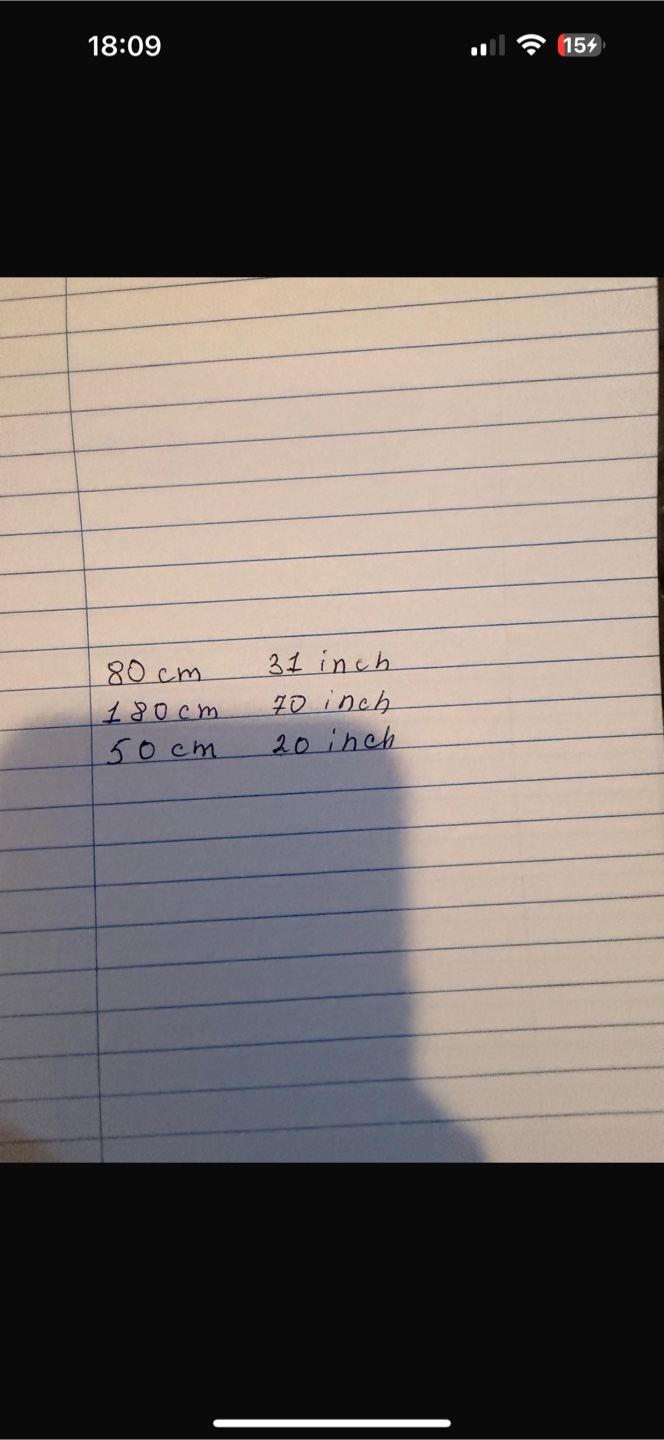 18:09
15
80 cm 31 inch
180 cm 70 inch
50 cm 20 inch